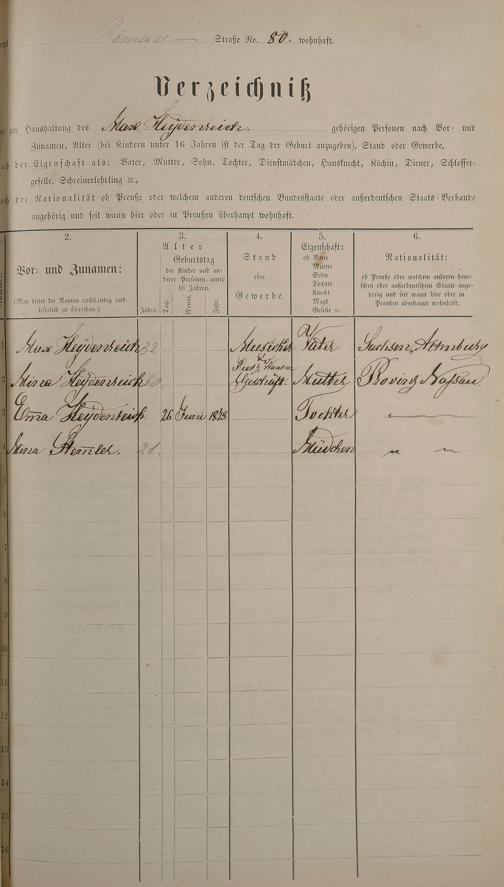 Straße No. 80. wohnhaft.
Verzeichniß
zur Haushaltung des Max Heÿdenreich. gehörigen Personen nach Vor- und
Zunamen, Alter (bei Kindern unter 16 Jahren ist der Tag der Geburt anzugeben), Stand oder Gewerbe,
nach der Eigenschaft als: Vater, Mutter, Sohn, Tochter, Dienstmädchen, Hausknecht, Köchin, Diener, Schlosser-
geselle, Schreinerlehrling ꝛc.,
nach der Nationalität ob Preuße oder welchem anderen deutschen Bundesstaate oder außerdeutschen Staats-Verbande
angehörig und seit wann hier oder in Preußen überhaupt wohnhaft.
2. 3. 4. 5. 6.
Vor- und Zunamen:
(Man bittet die Namen vollständig und
leserlich zu schreiben.)
Alter
Geburtstag
der Kinder und an-
derer Personen unter
16 Jahren.
Jahre Tag. Monat. Jahr.
Stand
oder
Gewerbe.
Eigenschaft:
ob Vater
Mutter
Sohn
Tochter
Knecht
Magd
Geselle u.
Nationalität:
ob Preuße oder welchem anderen deut-
schen oder außerdeutschen Staate ange-
hörig und seit wann hier oder in
Preußen überhaupt wohnhaft.
1 Max Heÿdenreich 32 Musicker Vater Sachsen, Altenburg
2 Mina Heÿdenreich Putz Waaren Geschäft Mutter Provinz Nassau
3 Em̄a Heÿdenreich 26 Juni 1878 Tochter —
4 Mina Stem̄ler. 21. Mädchen " "
5
6
7
8
9
10
11
12
13
14
15
16